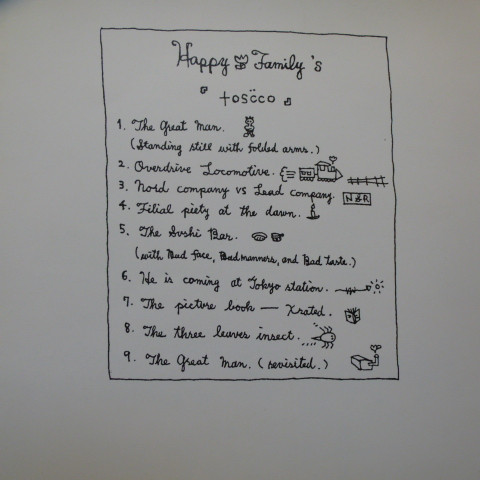 Happy Family's
『toscco』
1. The Great Man.
(Standing still with folded arms.)
2. Overdrive Locomotive.
3. Nord company vs Lead company. N&R
4. Filial piety at the dawn.
5. The Sushi Bar.
(with Bad face, Bad manners, and Bad taste.)
6. He is coming at Tokyo station.
7. The picture book — Xrated.
8. The three leaves insect.
9. The Great Man. (revisited.)